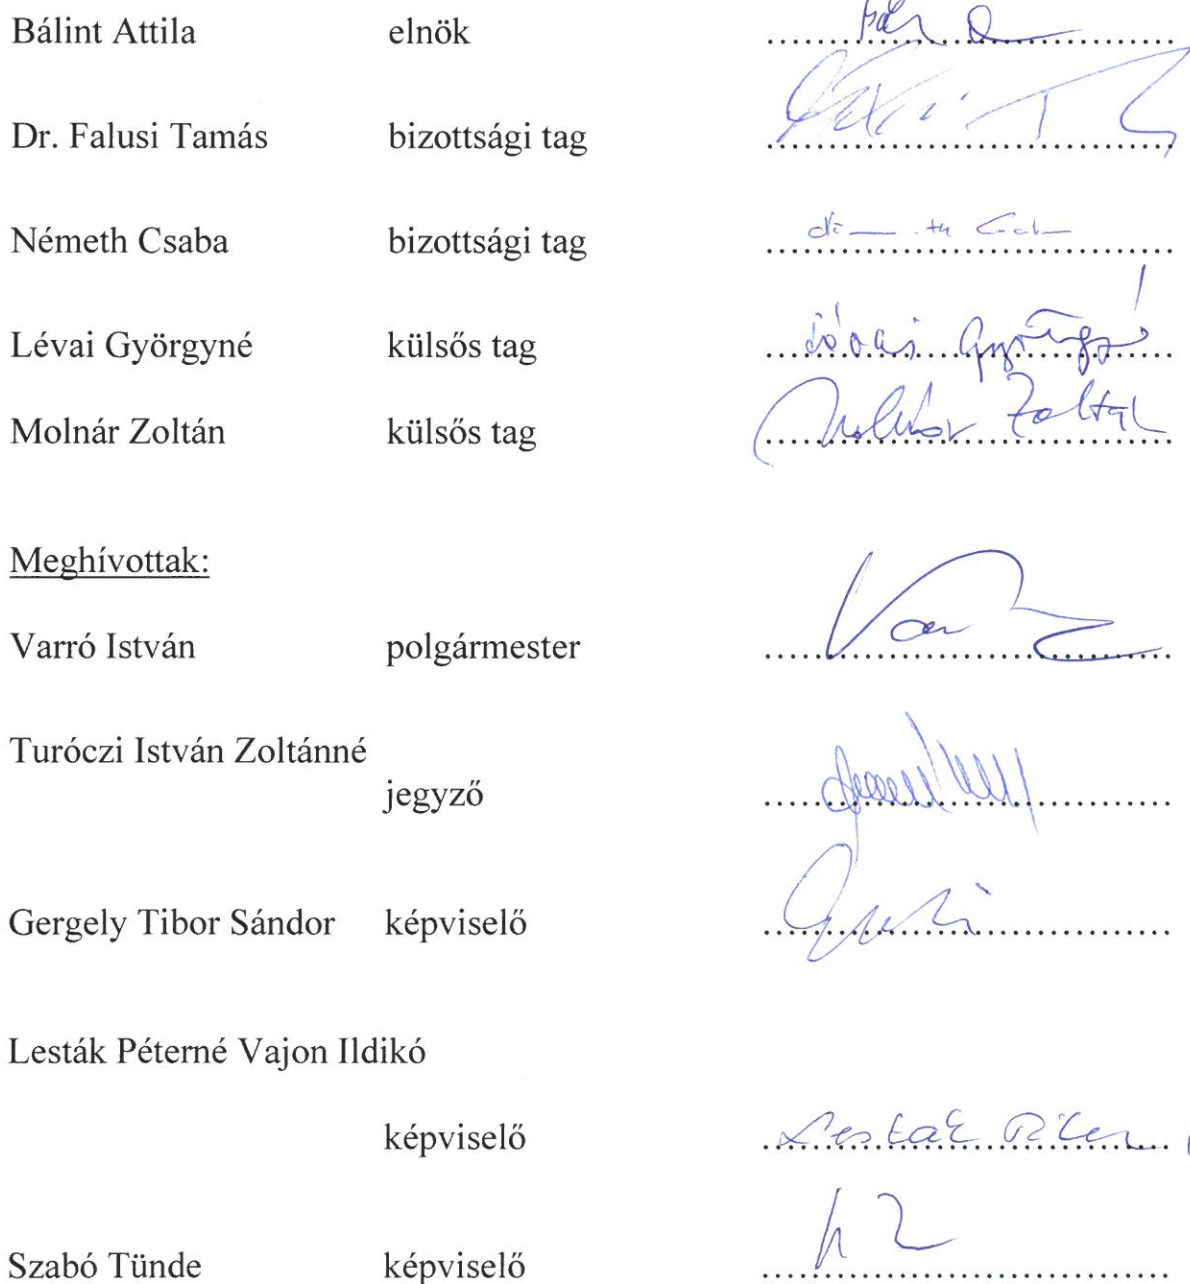 Bálint Attila elnök
Dr. Falusi Tamás bizottsági tag
Németh Csaba bizottsági tag
Lévai Györgyné külsős tag
Molnár Zoltán külsős tag Molnár Zoltán
Meghívottak:
Varró István polgármester
Turóczi István Zoltánné
jegyző
Gergely Tibor Sándor képviselő
Lesták Péterné Vajon Ildikó
képviselő Lesták
Szabó Tünde képviselő